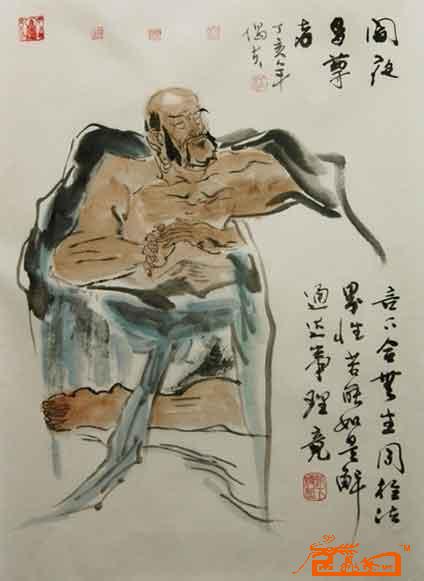 闍夜
多尊
者
丁亥年
言下合無生同於法
界性若能如是解
通达事理竟